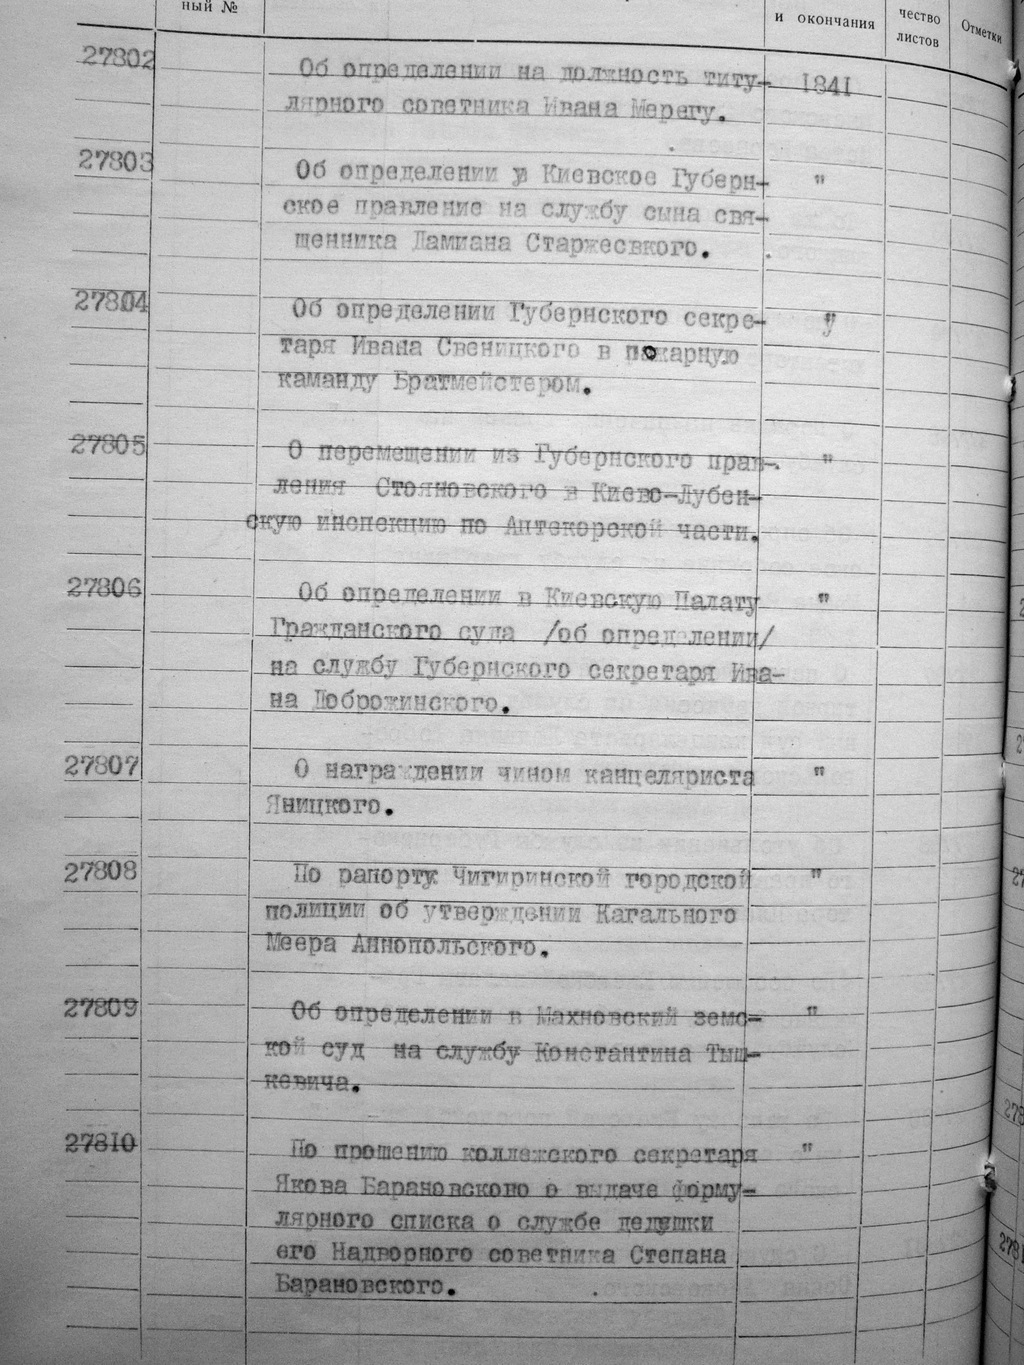 ный №
и окончания
чество
листов
Отметки
27802
Об определении на должность титу- 1841
лярного советника Ивана Мерегу.
27803
Об определении в Киевское Губерн- "
ское правление на службу сына свя-
щенника Дамиана Старжесвкого.
27804
Об определении Губернского секре- "
таря Ивана Свеницкого в пожарную
каманду Братмейстером.
27805
О перемещении из Губернского прав- "
ления Стояновского в Киево-Лубен-
скую инспекцию по Аптекорской части.
27806
Об определении в Киевскую Палату "
Гражданского суда /об определении/
на службу Губернского секретаря Ива-
на Доброжинского.
27807
О награждении чином канцеляриста "
Яницкого.
27808
По рапорту Чигиринской городской "
полиции об утверждении Кагального
Меера Аннопольского.
27809
Об определении в Махновский земс- "
кой суд на службу Константина Тыш-
кевича.
27810
По прошению коллежского секретаря "
Якова Барановского о выдаче форму-
лярного списка о службе дедушки
его Надворного советника Степана
Барановского.